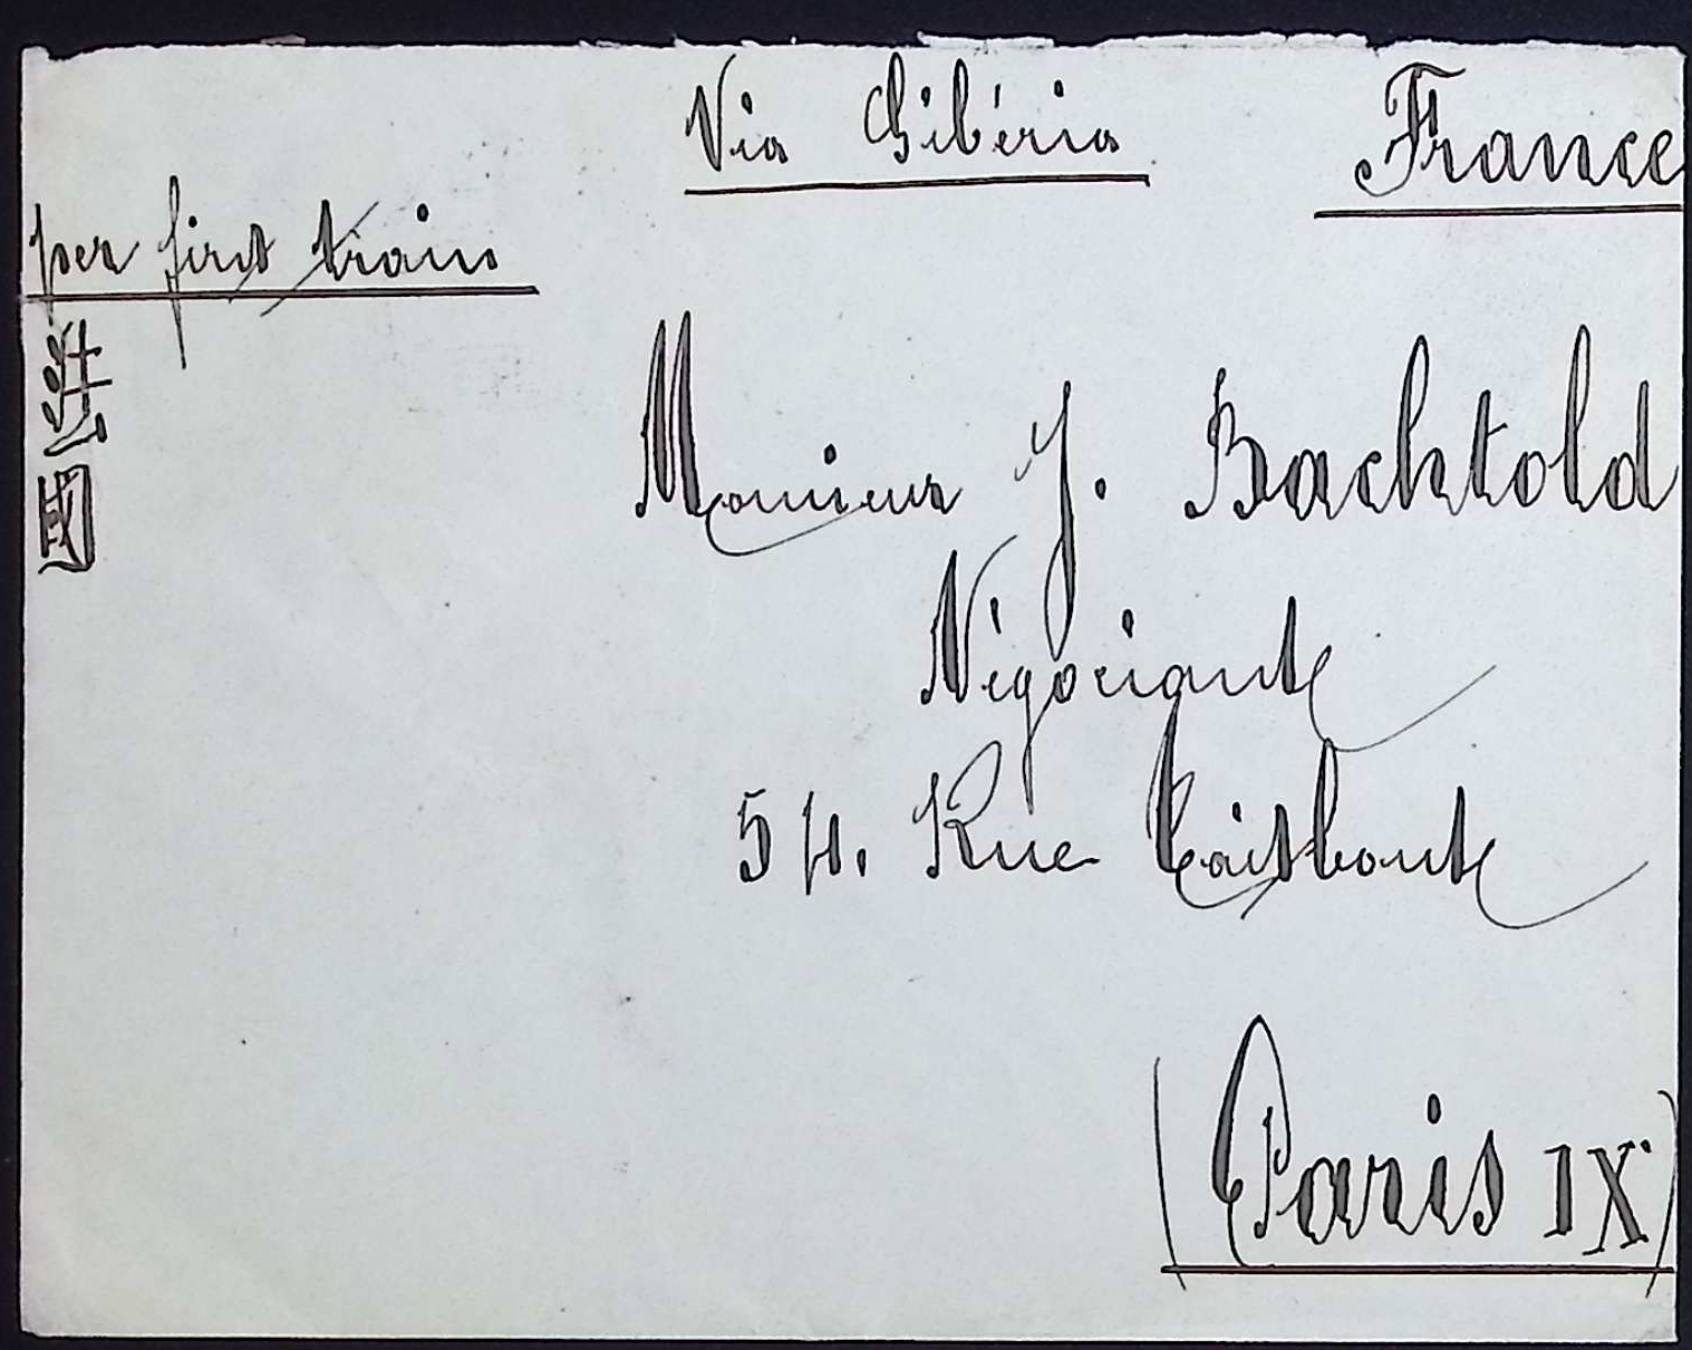 Via Sibéria
France
per first train
法
國
Monsieur J. Bachtold
Négociant
54. Rue Taitbout
(Paris IX)